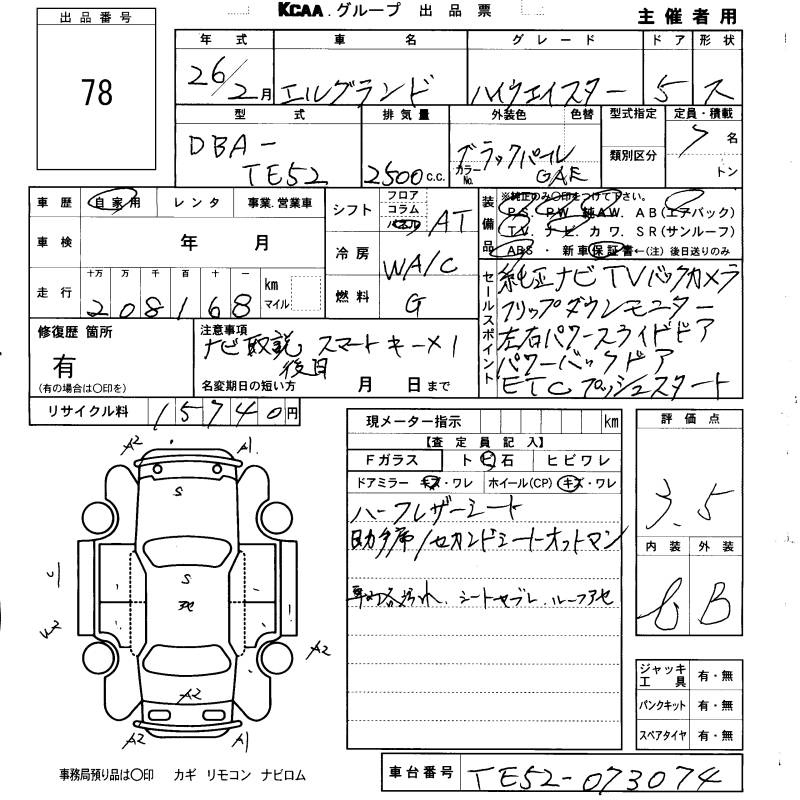 KCAA.グループ 出品票
主催者用
出品番号
78
年式 車名 グレード ドア 形状
26/2月 エルグランド ハイウェイスター 5 ス
型式 排気量 外装色 色替 型式指定 定員・積載
DBA-
TE52 2500c.c. ブラックパール カラーNo. GAE 類別区分 7名
トン
車歴 自家用 レンタ 事業.営業車
車検 年 月
走行 十万 万 千 百 十 一 km マイル
208168
シフト フロア コラム パネル AT
冷房 WA/C
燃料 G
装備品
※純正のみ○印をつけて下さい。
PS. PW. 純AW. AB(エアバック)
TV. ナビ. カワ. SR(サンルーフ)
ABS・新車保証書←(注)後日送りのみ
セールスポイント
純正ナビTVバックカメラ
フリップダウンモニター
左右パワースライドドア
パワーバックドア
ETC プッシュスタート
修復歴 箇所
有
(有の場合は○印を)
注意事項
ナビ取説 スマートキー×1
後日
名変期日の短い方 月 日まで
リサイクル料 15740円
現メーター指示 km
【査定員記入】
Fガラス トビ石 ヒビワレ
ドアミラー キズ・ワレ ホイール(CP) キズ・ワレ
ハーフレザーシート
助手席/セカンドシートオットマン
車内各汚れ.シートヤブレ.ルーフアセ
評価点
3.5
内装 外装
C B
ジャッキ工具 有・無
パンクキット 有・無
スペアタイヤ 有・無
A2 A1
S
S
A2
A2
A2 A1
事務局預り品は○印 カギ リモコン ナビロム
車台番号 TE52-073074